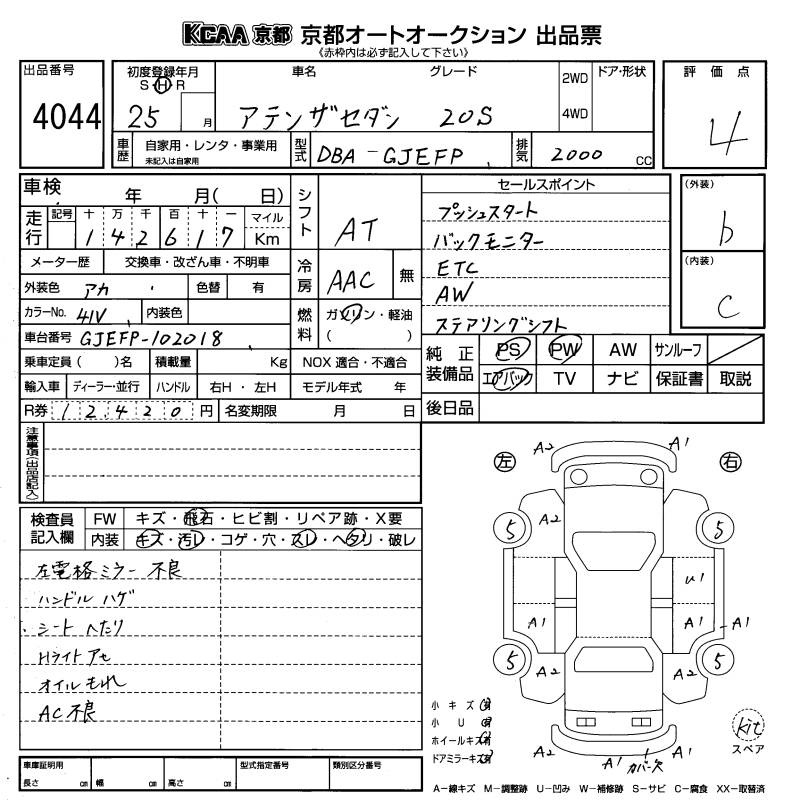 KCAA 京都 京都オートオークション 出品票
《赤枠内は必ず記入して下さい》
出品番号
4044
初度登録年月
S H R
25 月
車名 グレード
アテンザセダン 20S
2WD
4WD
ドア・形状
評価点
4
車歴
自家用・レンタ・事業用
未記入は自家用
型式
DBA-GJEFP
排気
2000 CC
車検 年 月( 日)
走行
記号 十 万 千 百 十 一 マイル
1 4 2 6 1 7 Km
メーター歴 交換車・改ざん車・不明車
外装色 アカ 色替 有
カラーNo. 41V 内装色
車台番号 GJEFP-102018
乗車定員( )名 積載量 Kg
輸入車 ディーラー・並行 ハンドル 右H・左H
R券 12,420 円 名変期限 月 日
シフト
AT
冷房
AAC 無
燃料
ガソリン・軽油
( )
NOX 適合・不適合
モデル年式 年
セールスポイント
プッシュスタート
バックモニター
ETC
AW
ステアリングシフト
(外装)
b
(内装)
c
純正装備品
PS PW AW サンルーフ
エアバック TV ナビ 保証書 取説
後日品
注意事項(出品店記入)
検査員記入欄
FW キズ・飛石・ヒビ割・リペア跡・X要
内装 キズ・汚レ・コゲ・穴・スレ・ヘタリ・破レ
左電格ミラー 不良
ハンドル ハゲ
シート へたり
Hライト アセ
オイル もれ
AC 不良
左 右
A2 A1
A2
5 5
U1
A1 A1 A1
5 5
A2 A2
A2 A1 カバー欠 A2
小キズ 有
小U 有
ホイールキズ 有
ドアミラーキズ 有
kit
スペア
車庫証明用
長さ cm 幅 cm 高さ cm
型式指定番号
類別区分番号
A-線キズ M-調整跡 U-凹み W-補修跡 S-サビ C-腐食 XX-取替済